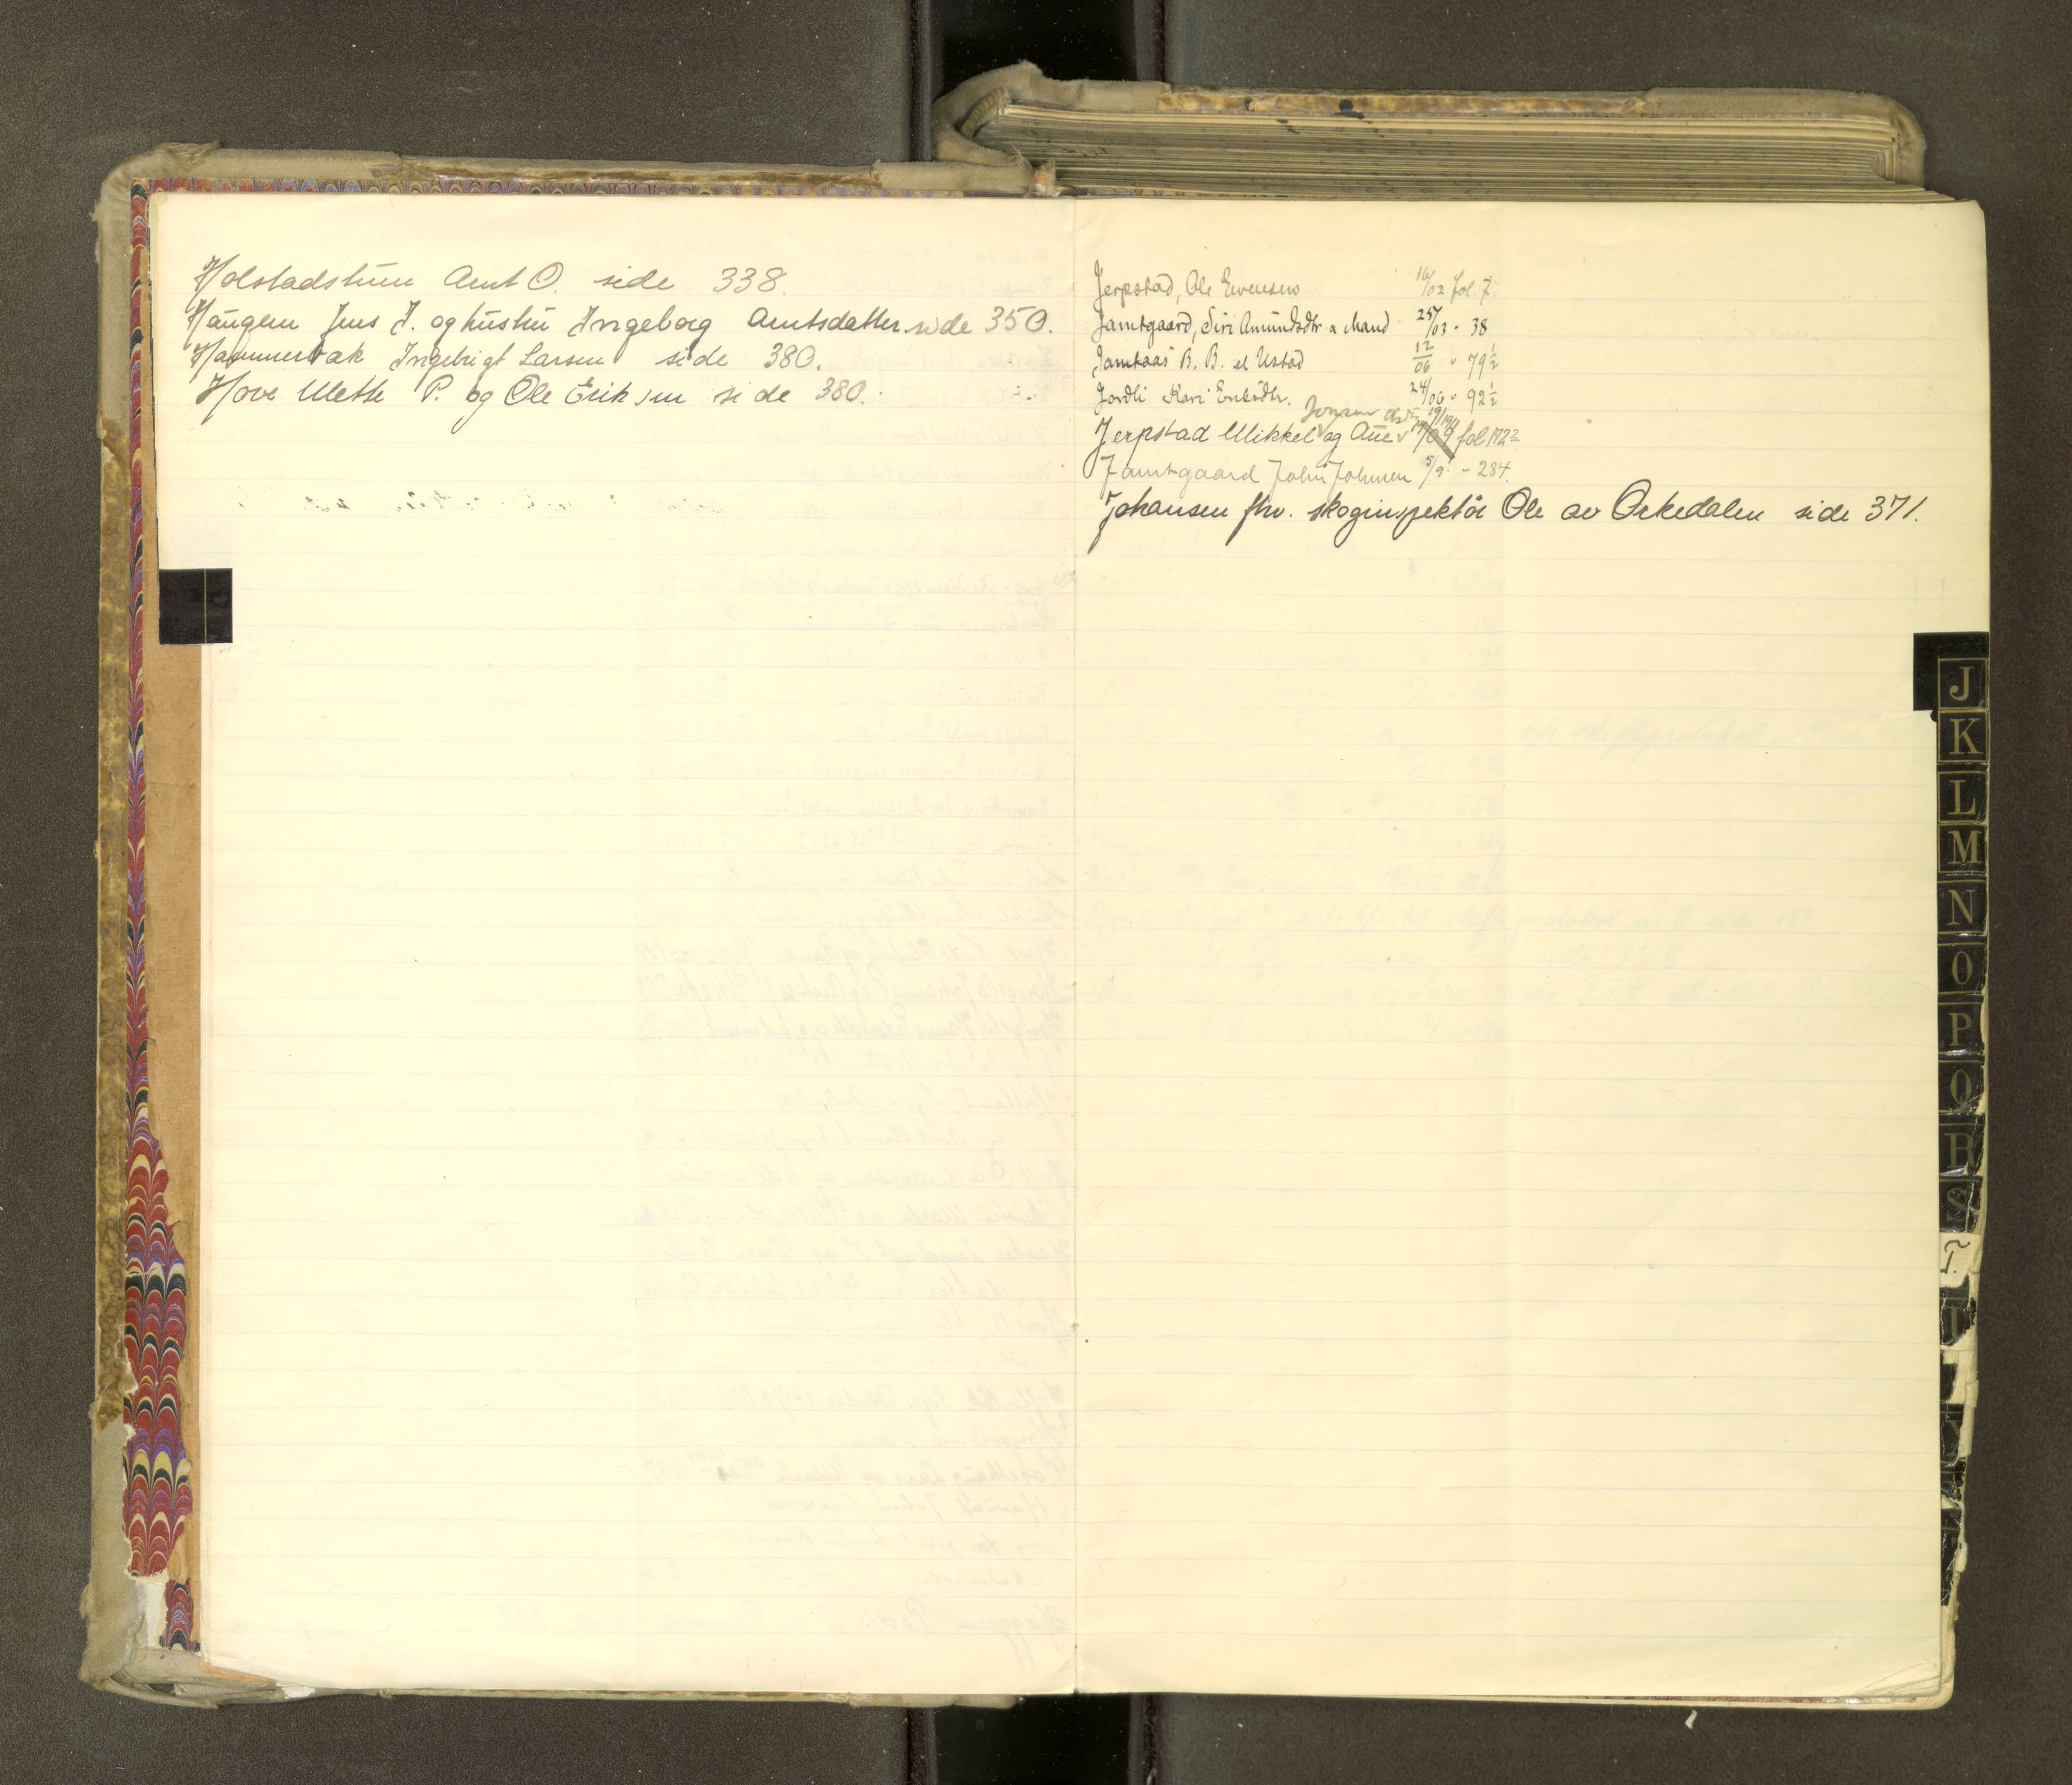 Holstadstrun Arnt O. side 338.
Haugen Jens J. og hustru Ingeborg Arntsdatter side 350.
Hammerbak Ingebrigt Larsen side 380.
Hove Mette P. og Ole Eriksen side 380.
Jerpstad, Ole Evensen 16/02 fol. 7.
Jamtgaard, Siri Amundsdtr a Mand 25/03 " 38
Jamtaas B. B. el Ustad 12/06 " 79½
Jordli Kari Eriksdtr. 24/06 " 92½
Jerpstad Mikkel og Ane fol 172
Jamtgaard John Johnsen 5/9 " 284.
Johansen fhv. skoginspektör Ole av Orkedalen side 371.
J
K
L
M
N
O
P
Q
R
S
T.